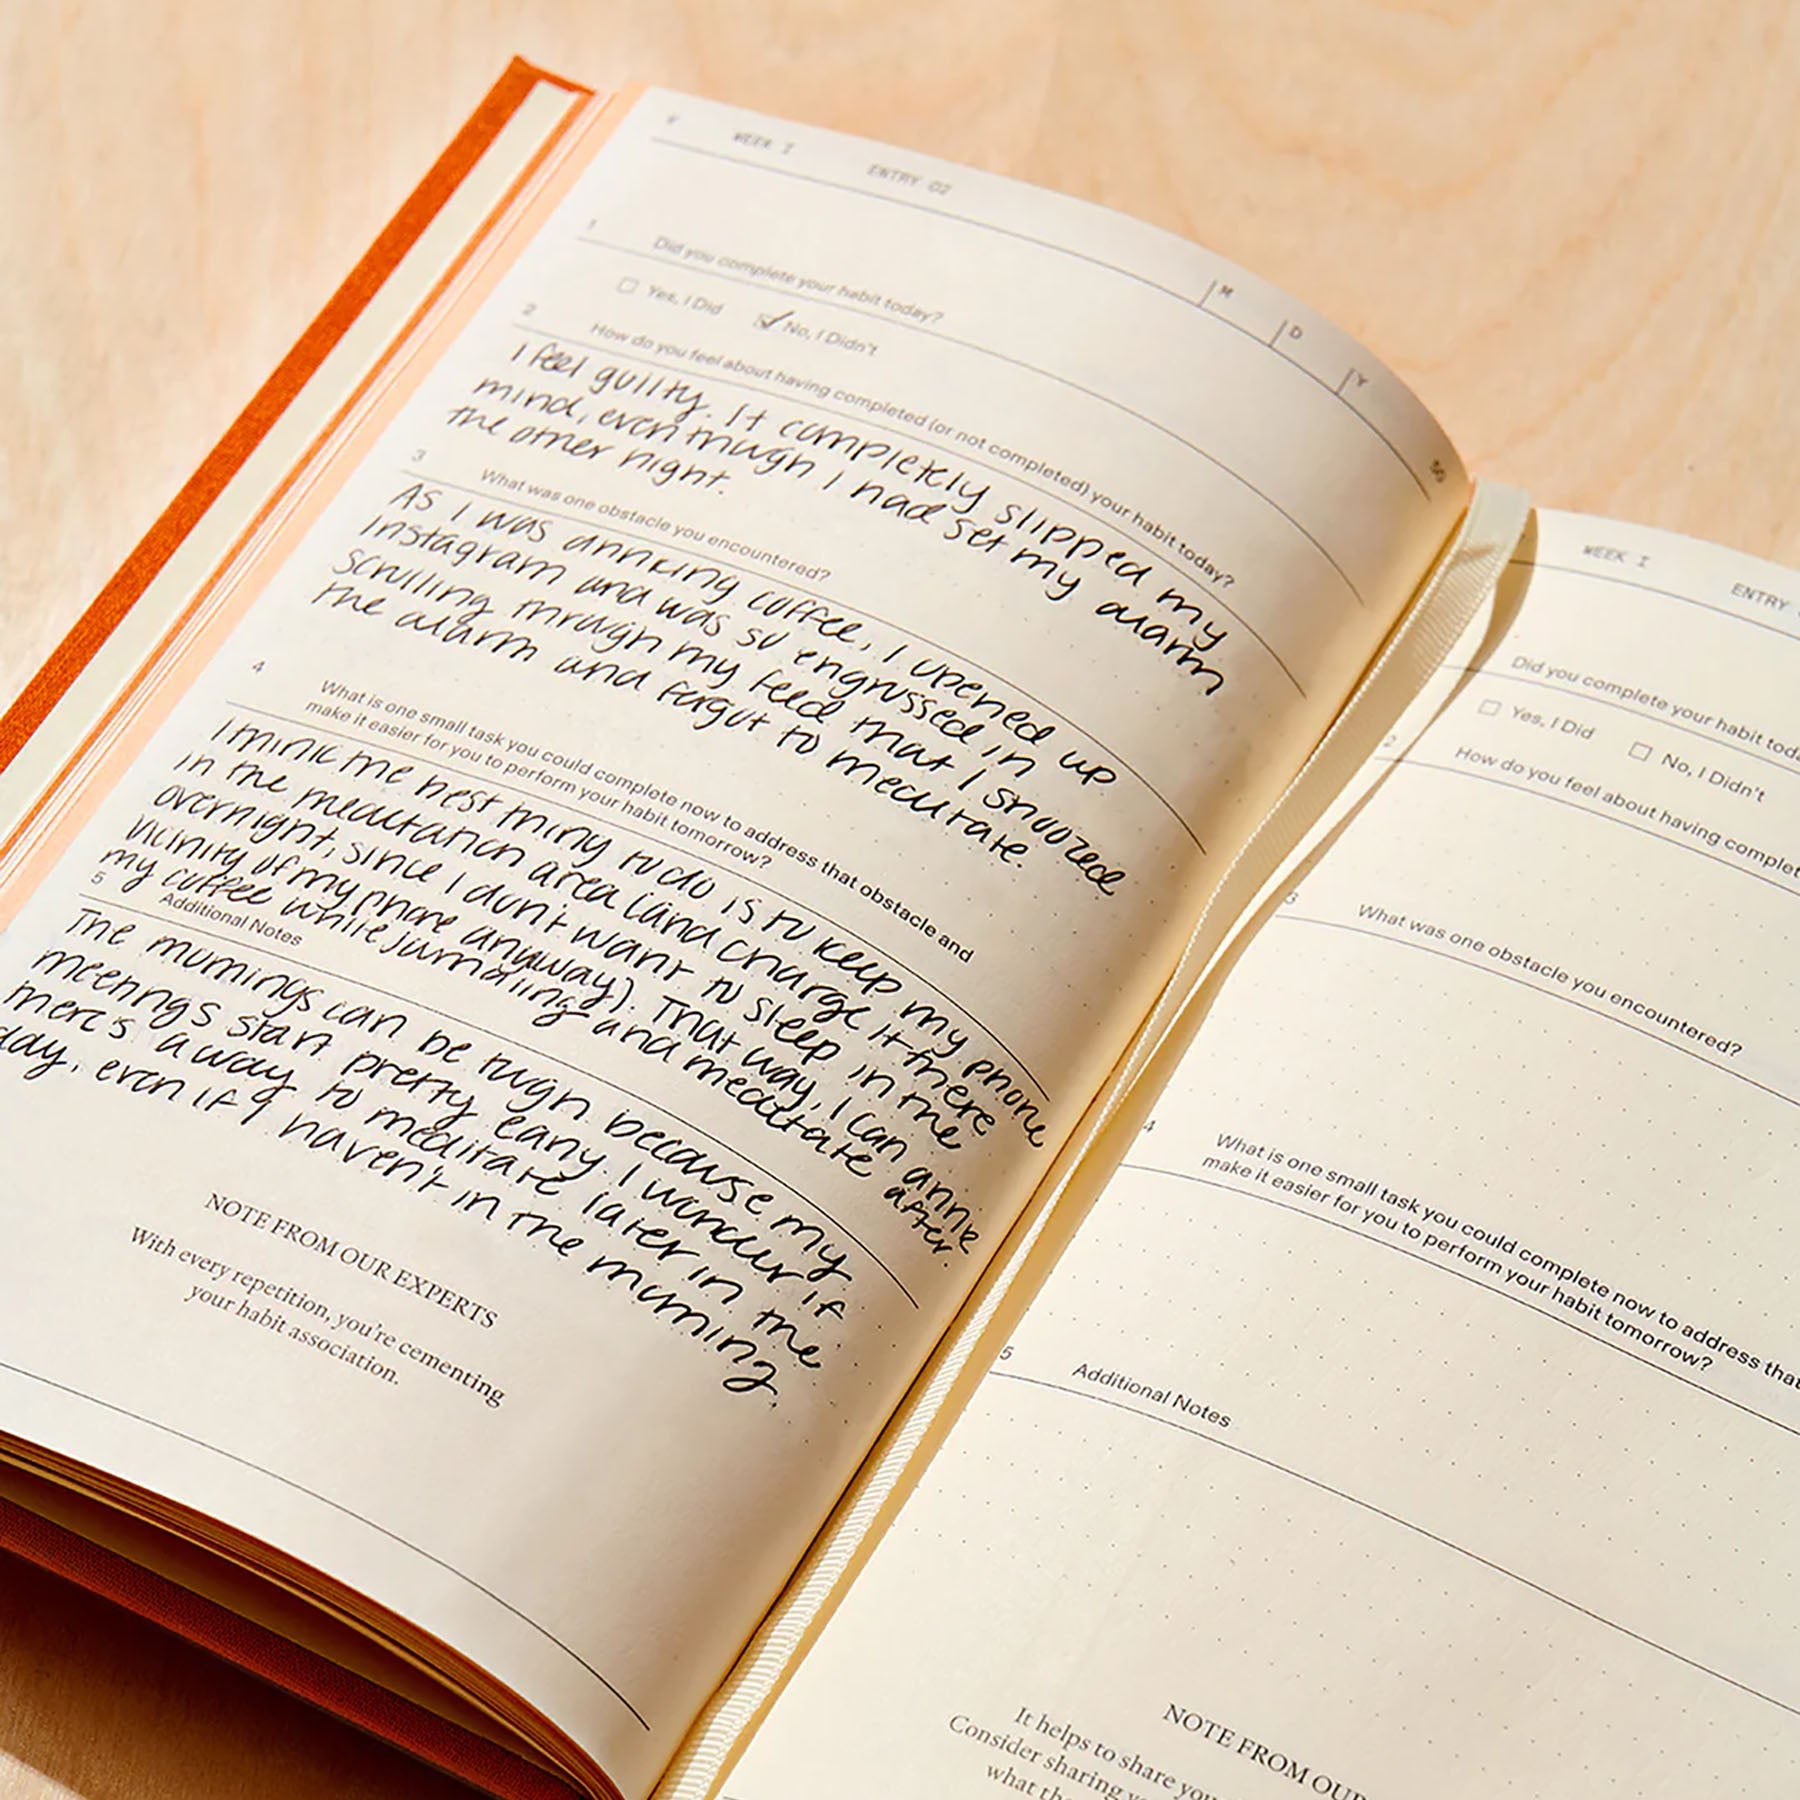 WEEK I
ENTRY 02
M
D
Y
59
1
Did you complete your habit today?
Yes, I Did
No, I Didn't
2
How do you feel about having completed (or not completed) your habit today?
I feel guilty. It completely slipped my
mind, even though I had set my alarm
the other night.
3
What was one obstacle you encountered?
As I was drinking coffee, I opened up
Instagram and was so engrossed in
scrolling through my feed that I snoozed
the alarm and forgot to meditate.
4
What is one small task you could complete now to address that obstacle and
make it easier for you to perform your habit tomorrow?
I think the best thing to do is to keep my phone
in the meditation area (and charge it there
overnight, since I don't want to sleep in the
vicinity of my phone anyway). That way, I can drink
my coffee while journaling and meditate after.
5
Additional Notes
The mornings can be tough because my
meetings start pretty early. I wonder if
there's a way to meditate later in the
day, even if I haven't in the morning.
NOTE FROM OUR EXPERTS
With every repetition, you're cementing
your habit association.
WEEK I
ENTRY
Did you complete your habit
Yes, I Did
No, I Didn't
2
How do you feel about having
3
What was one obstacle you encountered?
4
What is one small task you could complete now to address that
make it easier for you to perform your habit tomorrow?
5
Additional Notes
NOTE FROM OUR
It helps to share
Consider sharing
what